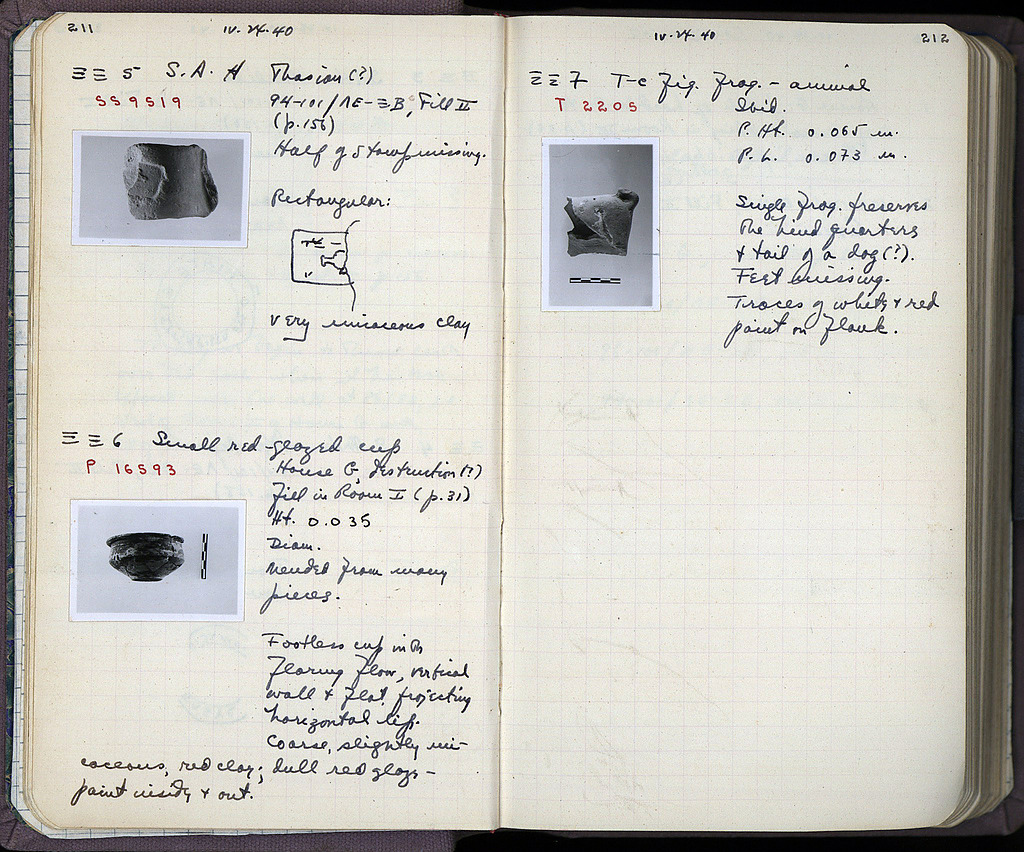 211
IV·24·40
ΞΞ 5 S.A.H Thasian(?)
SS9519
94-101/ΛE-ΞB, Fill II
(p.156)
Half of stamp missing.
Rectangular:
very micaceous clay
ΞΞ 6 Small red-glazed cup
P 16593
House G, destruction(?)
fill in Room I (p.31)
Ht. 0.035
Diam.
Mended from many
pieces.
Footless cup with
flaring floor, vertical
wall & flat projecting
horizontal lip.
Coarse, slightly mi-
caceous, red clay; dull red glaze-
paint inside & out.
IV·24·40
212
ΞΞ 7 T-c fig. frag. - animal
T 2205
Ibid.
P. Ht. 0.065 m.
P. L. 0.073 m.
Single frag. preserves
the hind quarters
& tail of a dog(?).
Feet missing.
Traces of white & red
paint on flank.